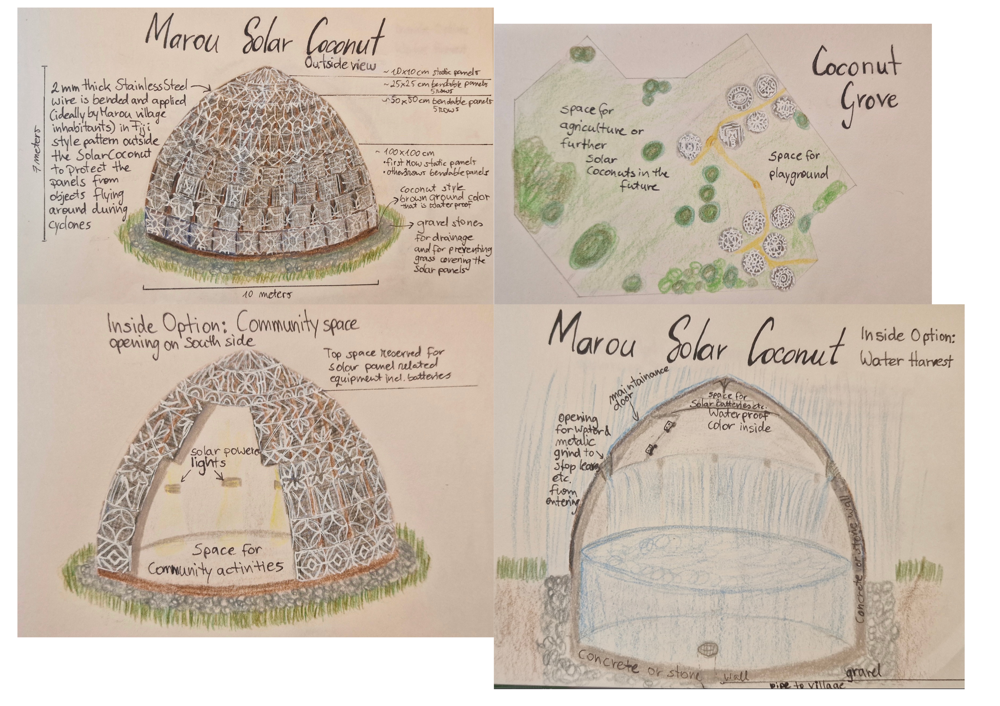 Marou Solar Coconut
Outside view
2mm thick Stainless Steel
wire is bended and applied
(ideally by Marou village
inhabitants) in Fiji
style pattern outside
the Solar Coconut
to protect the
panels from
objects flying
around during
cyclones
7 meters
~10x10 cm static panels
~25x25 cm bendable panels
5 rows
~50x50 cm bendable panels
5 rows
~100x100cm
• first row static panels
• other rows bendable panels
coconut style
brown ground color
that is waterproof
gravel stones
for drainage
and for preventing
grass covering the
solar panels
10 meters
Coconut
Grove
space for
agriculture or
further
Solar
Coconuts in the
future
space for
playground
Inside Option: Community space
opening on South side
Top space reserved for
solar panel related
equipment incl. batteries
solar powered
lights
Space for
Community activities
Marou Solar Coconut
Inside Option:
Water Harvest
maintainance
door
space for
Solar Batteries etc.
Waterproof
color inside
Opening
for water &
metalic
grind to
stop leaves
etc.
from
entering
Concrete or stone
Concrete or stone wall
gravel
pipe to village